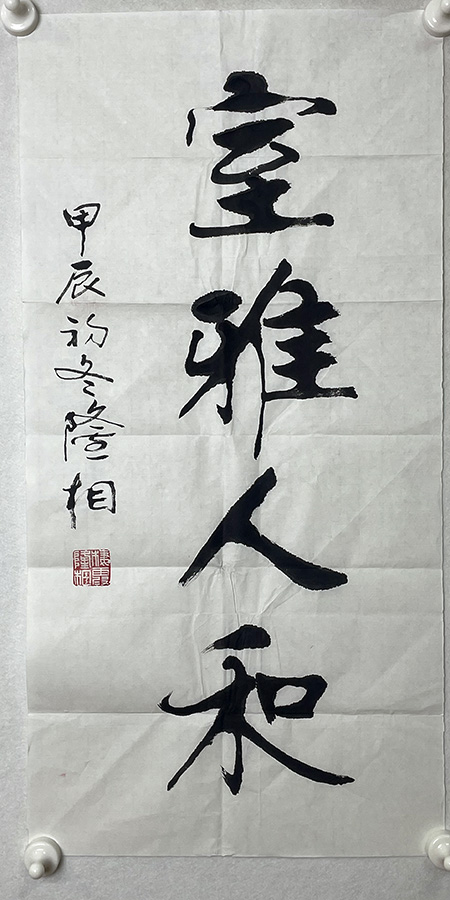 室雅人和
甲辰初冬隆相